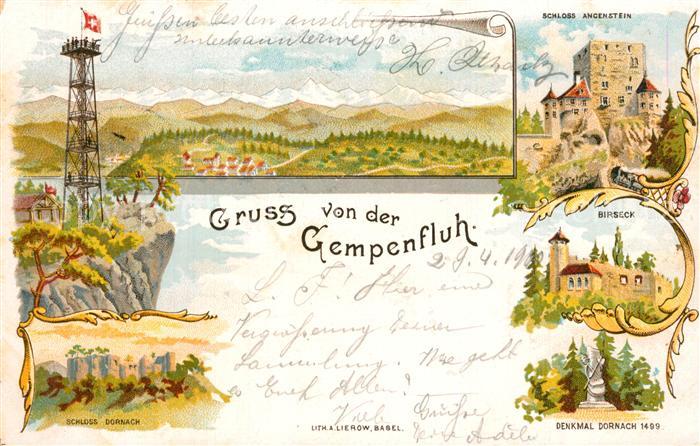 Grüssen besten anschliessend
unbekannterweise
SCHLOSS ANGENSTEIN
Gruss von der
Gempenfluh.
BIRSECK
29.4.1900
L. F.! Hier eine
Vergrösserung Deiner
Sammlung. Wie geht
es Euch Allen?
Viele Grüsse
SCHLOSS DORNACH
LITH. A. LIEROW, BASEL.
DENKMAL DORNACH 1499